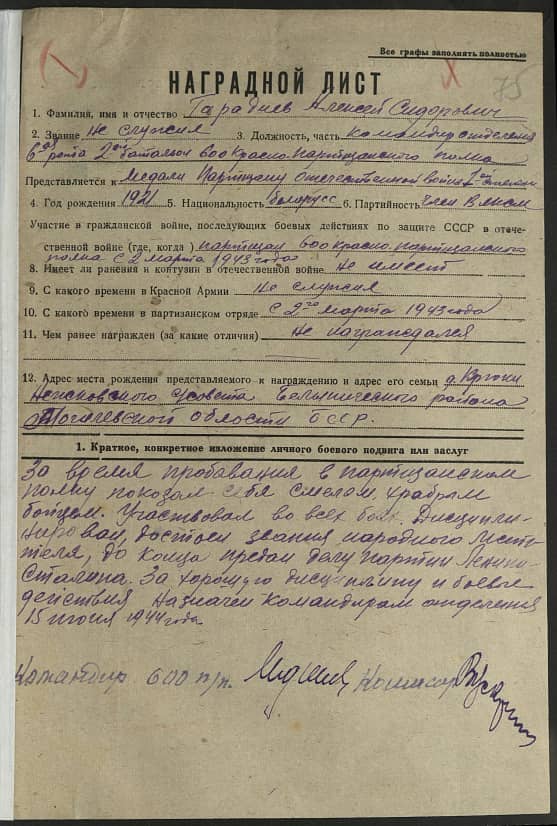 Все графы заполнять полностью
75
НАГРАДНОЙ ЛИСТ
1. Фамилия, имя и отчество Гарадиев Алексей Сидорович
2. Звание не служил 3. Должность, часть командир отделения
6ая рота 2ой баталион 600 Красно.партизанского полка
Представляется к медали Партизану отечественной войны 2ой степени
4. Год рождения 1921 5. Национальность белорусс 6. Партийность член ВЛКСМ
Участие в гражданской войне, последующих боевых действиях по защите СССР в отече-
ственной войне (где, когда) партизан 600 Красно.партизанского
полка с 2 марта 1943 года
8. Имеет ли ранения и контузии в отечественной войне не имеет
9. С какого времени в Красной Армии не служил
10. С какого времени в партизанском отряде с 2го марта 1943 года
11. Чем ранее награжден (за какие отличия) не награждался
12. Адрес места рождения представляемого к награждению и адрес его семьи д.
совета Белыничского района
Могилевской области БССР.
1. Краткое, конкретное изложение личного боевого подвига или заслуг
За время пробавания в партизанском
полку показал себя смелым, храбрым
бойцом. Участвовал во всех боях. Дисципли-
нирован, достоен звания народного мсти-
теля, до конца предан делу партии Ленина
Сталина. За хорошую дисциплину и боевые
действия назначен командиром отделения
15 июня 1944 года
Командир 600 п/п. Комиссар